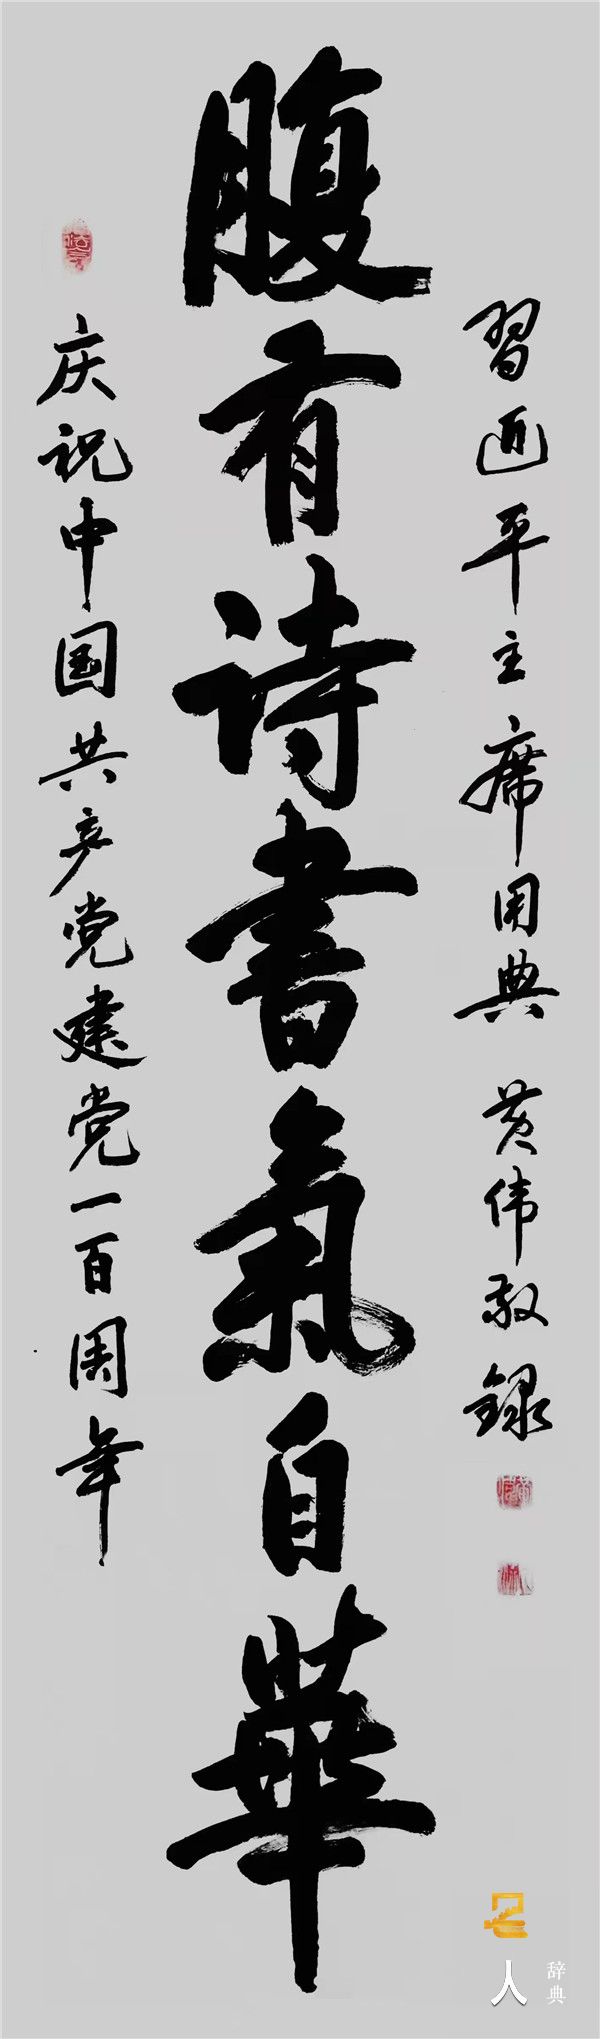 腹有诗書氣自華
習近平主席用典 黄伟敬録
庆祝中国共产党建党一百周年
名人
辞典